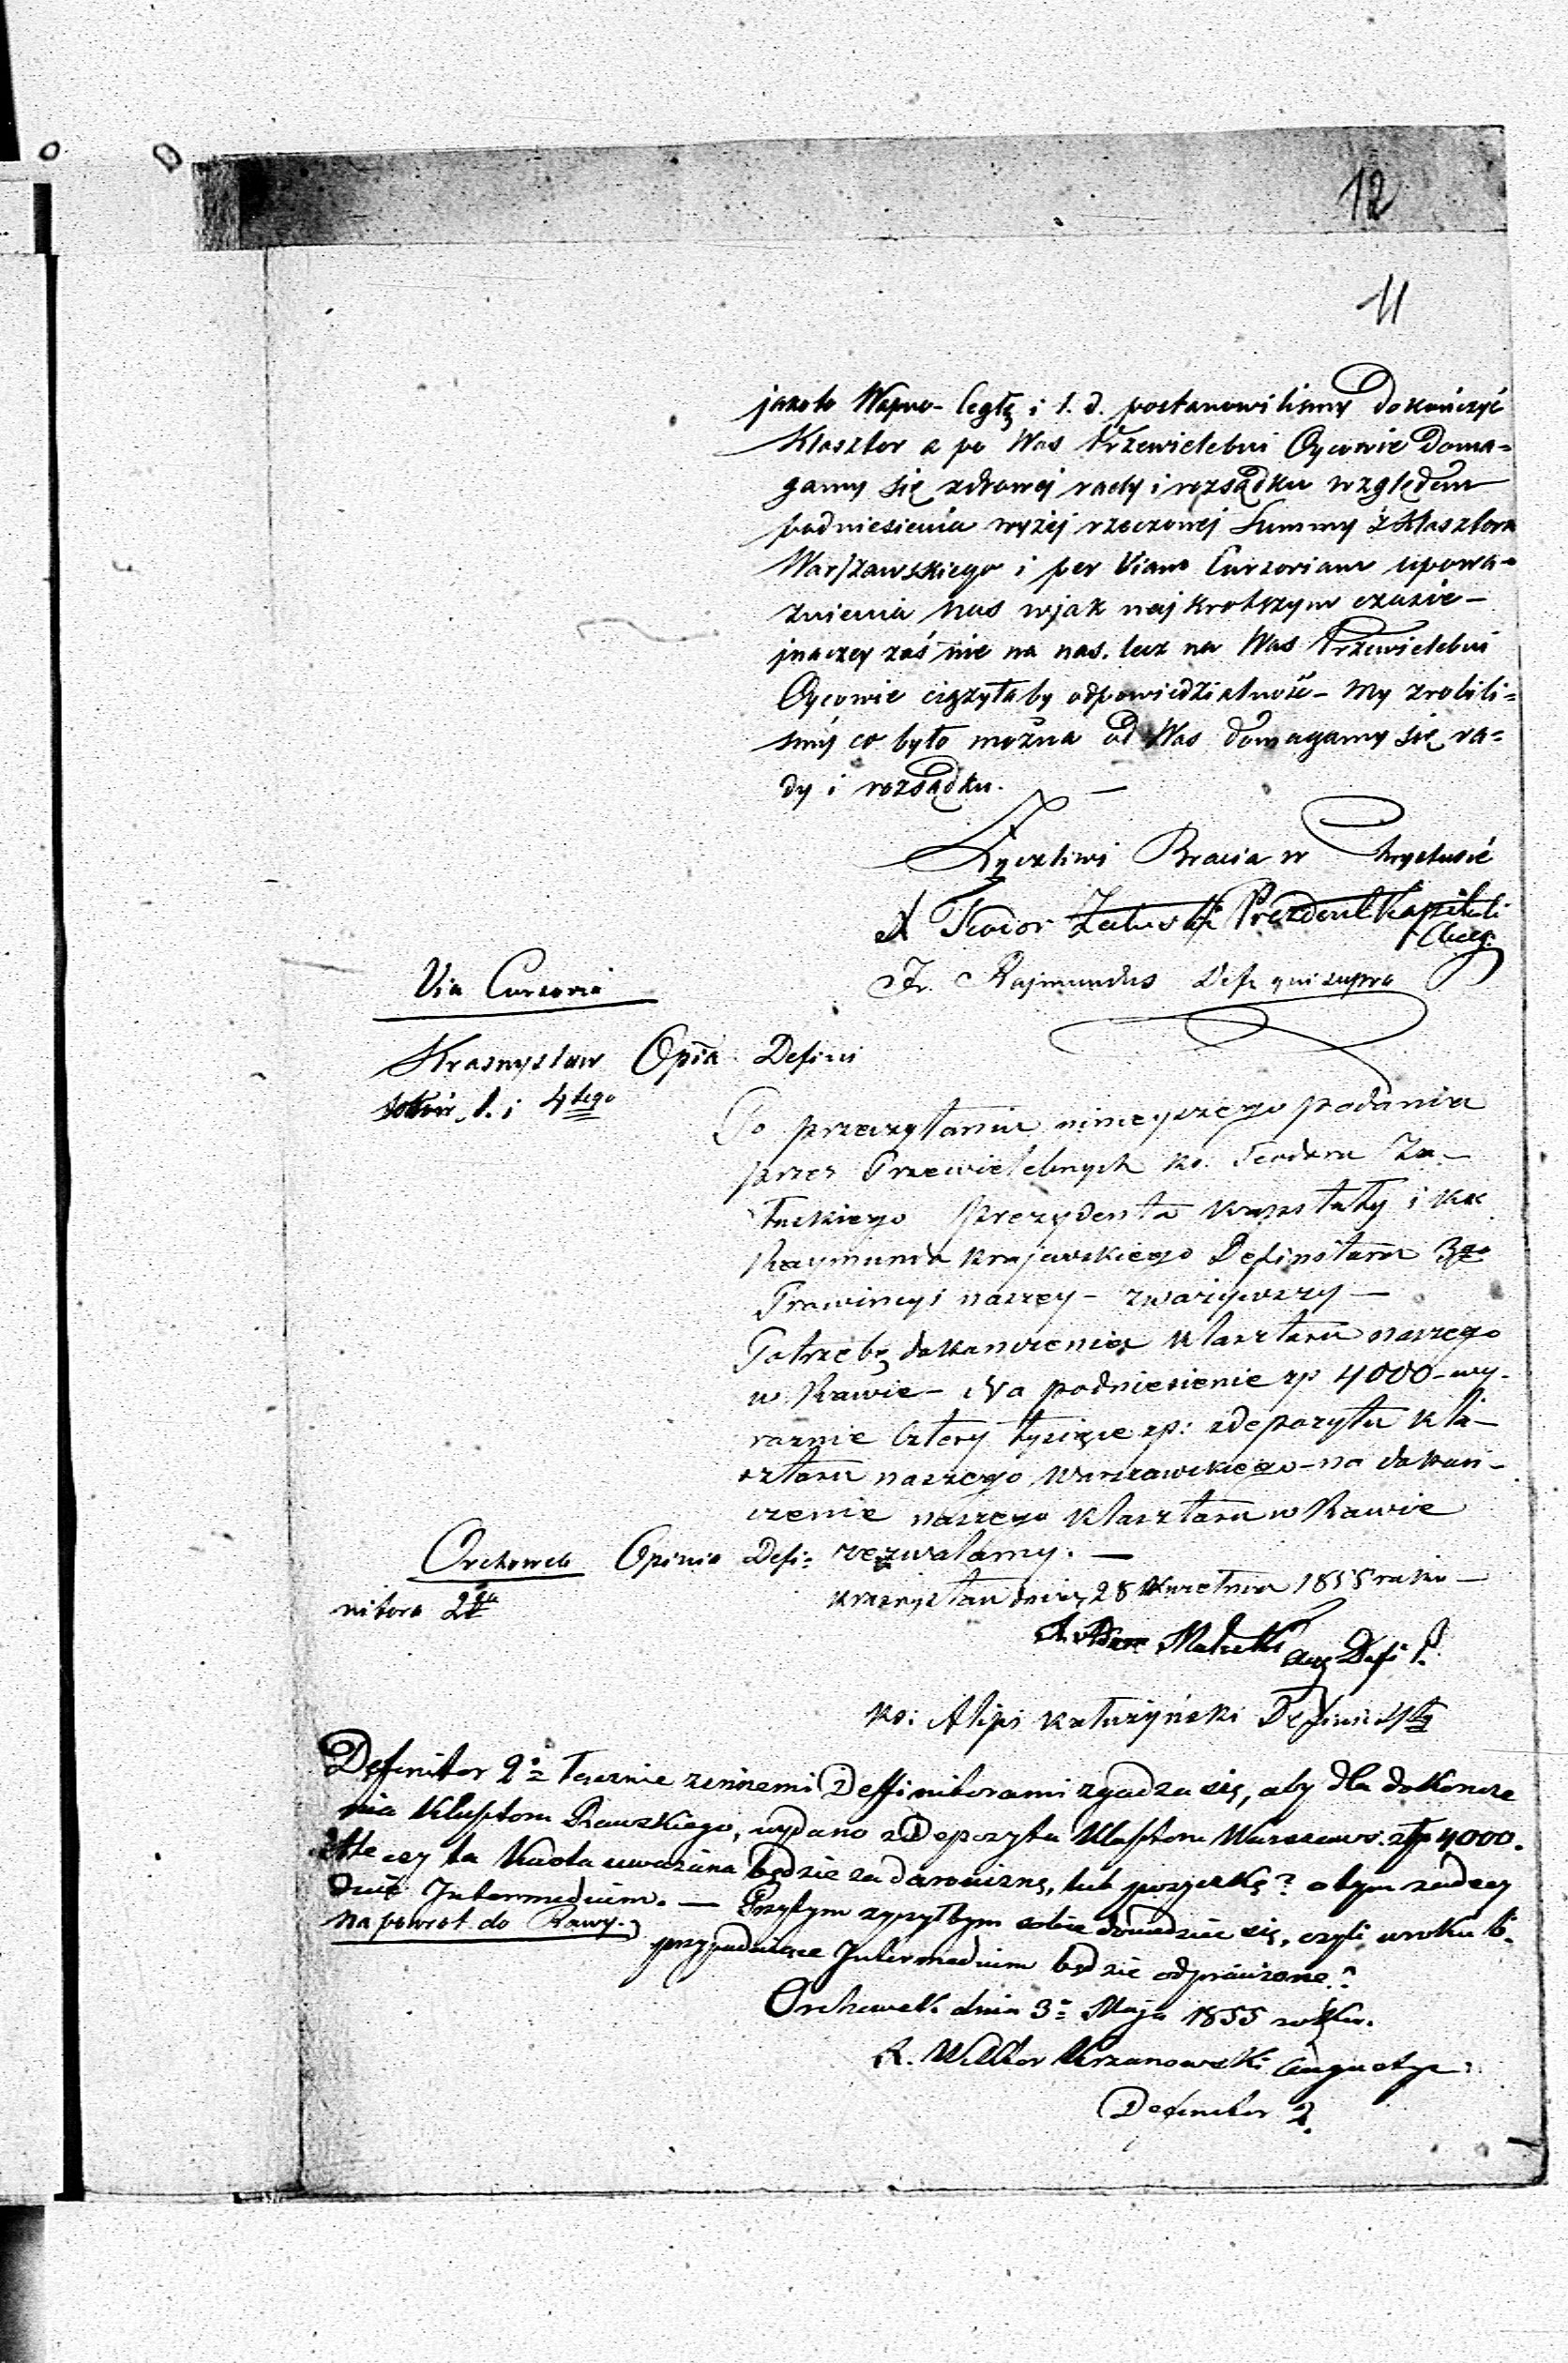 12
11
jakoto Wapno – Cegłę i t. d. postanowiliśmy dokończyć
Klasztor a po Was Przewielebni Oycowie doma=
gamy się zdrowéj rady i rozsądku względem
podniesienia wyżéj rzeczonéj Summy z Klasztora
Warszawskiego i per Viam Cursoriam upowa=
żnienia nas wjak najkrotszym czasie –
jnaczey zaś nie na nas, lecz na Was Przewielebni
Oycowie ciążyłaby odpowiedzialność – My zrobili=
śmy co było można od Was domagamy się ra=
dy i rozsądku. —
Życzliwi Bracia w Chrystusie
X Teodor Załuski Prezydent Kapituli
Aug:
Fr. Rajmundus Defr qui supra
Via Cursoria
Krasnystaw Opia Defini
1. i 4tego
Po przeczytaniu ninieyszego podania
przez Przewielebnych Ks. Teodora Za–
łuskiego Prezydenta Kapituły i Ks
Raymunda Krajewskiego Definitora 3go
Prowincyi naszey – zważywszy —
Potrzebę dokonczenia Klasztoru naszego
w Rawie – Na podniesienie zp 4000 – wy-
raznie Cztery tysiące zp: z depozytu Kla–
sztoru naszego Warszawskiego – na dokon–
czenie naszego Klasztoru w Rawie
zezwalamy. —
Orchowek Opinia Defi=
nitora 2go
Krasnystaw dnia 28 Kwietnia 1855 roku —
Malecki Aug Defi 1.
Ks: Alipi Kałużyński Defini 4ty
Defenitor 2o łącznie zinnemi Deffinitorami zgadza się, aby dla dokoncze
nia Klasztoru Rawskiego, wydano z Depozytu Klasztoru Warszaws. złp 4000.
Ale czy ta Kwota uważana będzie za darowiznę, lub pożyczkę? otym zadecy
duie Intermedium. — Przytym życzyłbym sobie dowiedzieć się, czyli wroku b.
na powrot do Rawy.
przypadaiące Intermedium będzie odprawione?
Orchowek dnia 3o Maja 1855 roku.
X. Wiktor Krzanowski Augustyn:
Defenitor 2.